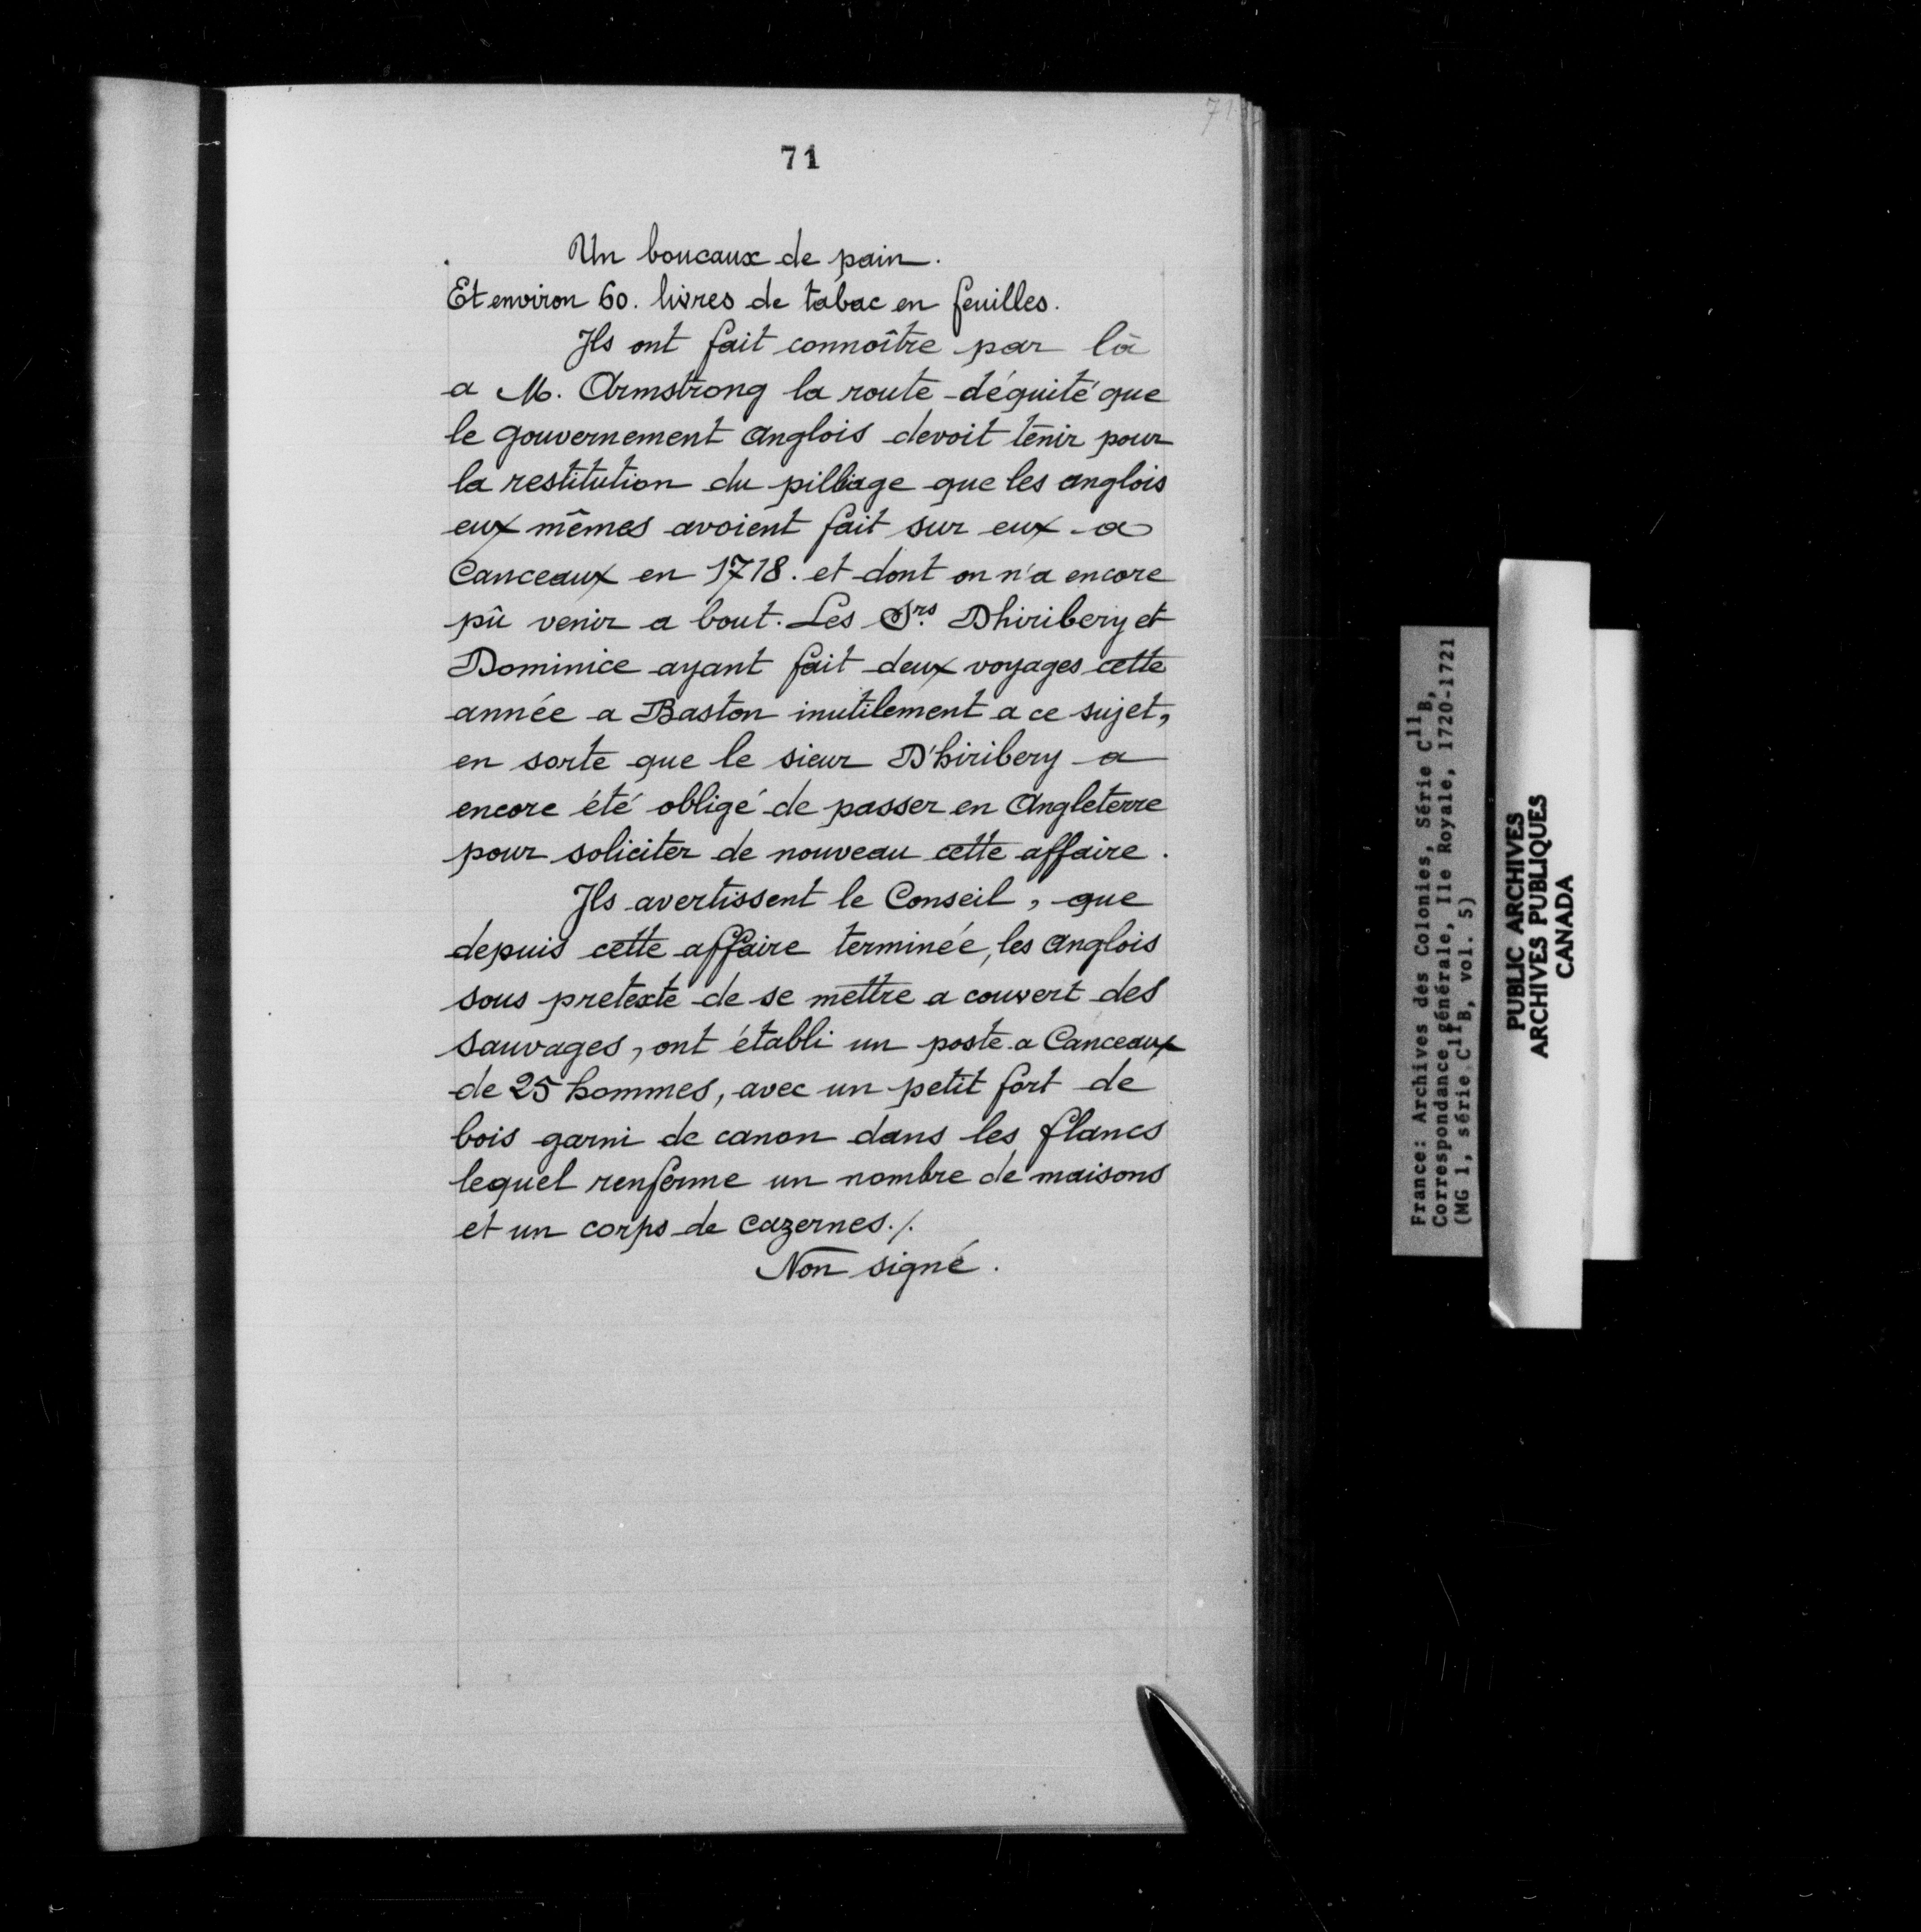 71
71
Un boucaux de pain.
Et environ 60. livres de tabac en feuilles.
Ils ont fait connoître par là
a M. Armstrong la route déquité que
le gouvernement anglois devoit tenir pour
la restitution du pilliage que les anglois
eux mêmes avoient fait sur eux a
Canceaux en 1718. et dont on n'a encore
pû venir a bout. Les Srs. Dhiribery et
Dominice ayant fait deux voyages cette
année a Baston inutilement a ce sujet,
en sorte que le sieur D'hiribery a
encore été obligé de passer en Angleterre
pour soliciter de nouveau cette affaire.
Ils avertissent le Conseil, que
depuis cette affaire terminée, les anglois
sous pretexte de se mettre a couvert des
Sauvages, ont établi un poste a Canceaux
de 25 hommes, avec un petit fort de
bois garni de canon dans les flancs
lequel renferme un nombre de maisons
et un corps de cazernes./.
Non signé.
France: Archives des Colonies, Série C11B,
Correspondance générale, Ile Royale, 1720-1721
(MG 1, série C11B, vol. 5)
PUBLIC ARCHIVES
ARCHIVES PUBLIQUES
CANADA